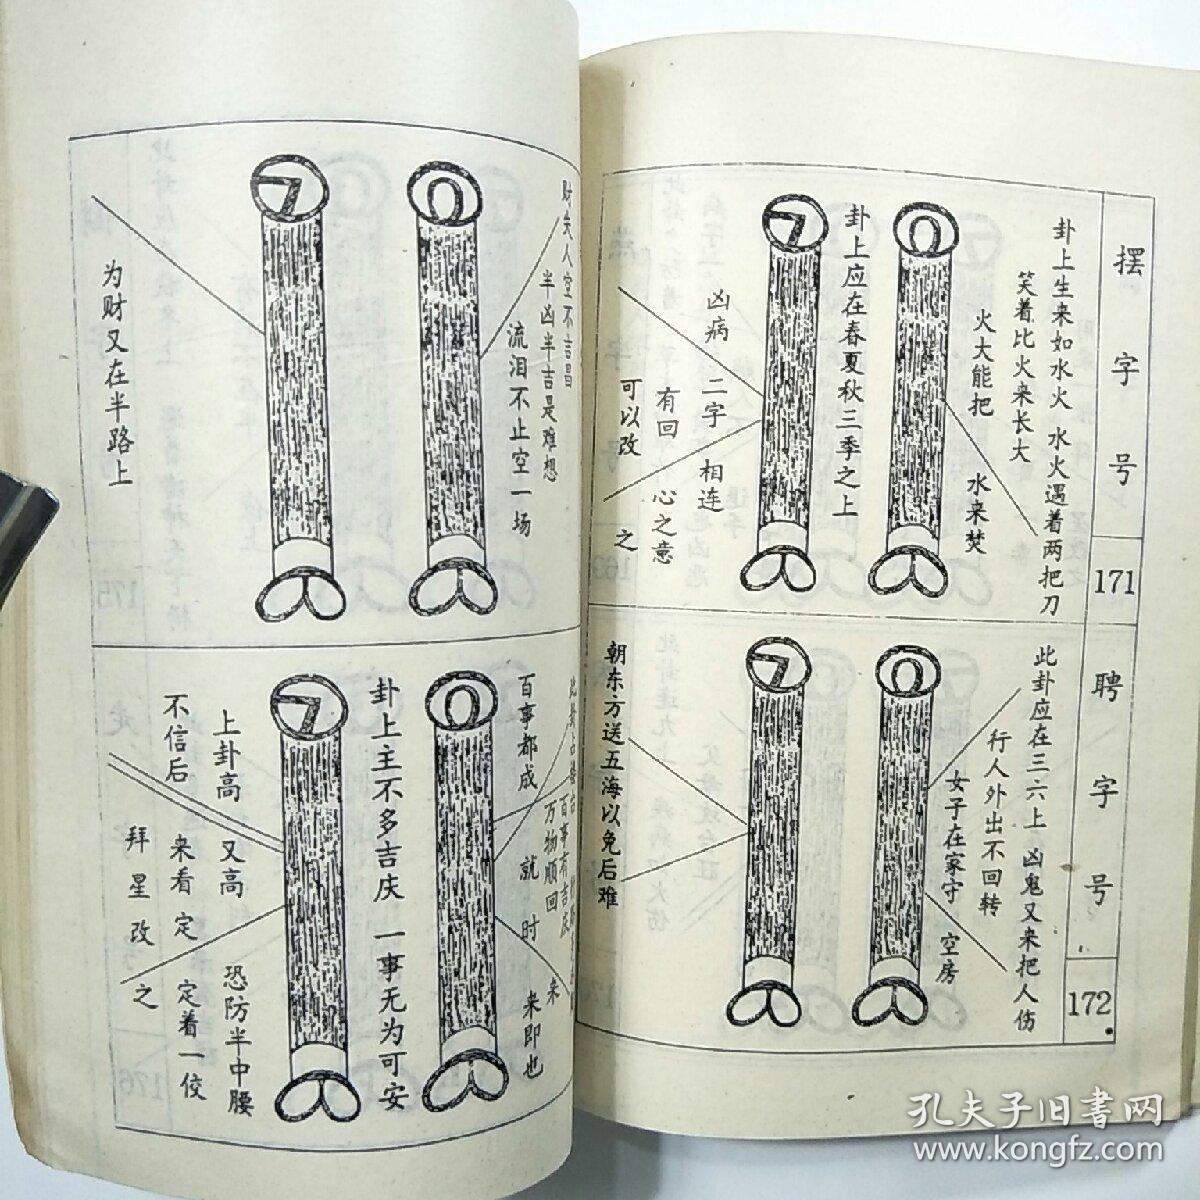 摆字号
171
卦上生来如水火 水火遇着两把刀
笑着比火来长大
火大能把 水来焚
卦上应在春夏秋三季之上
凶病二字相连
有回心之意
可以改之
聘字号
172
此卦应在三六上 凶鬼又来把人伤
行人外出不回转
女子在家守空房
朝东方送五海以免后难
财去人空不吉昌
半凶半吉是难想
流泪不止空一场
为财又在半路上
百事有吉庆
万物顺回
百事都成 就时来即也
卦上主不多吉庆 一事无为可安
上卦高又高 恐防半中腰
不信后来看定 定着一佼
拜星改之
孔夫子旧书网
www.kongfz.com